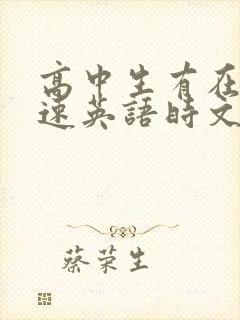 高中生有在
速英語時文
蔡荣生